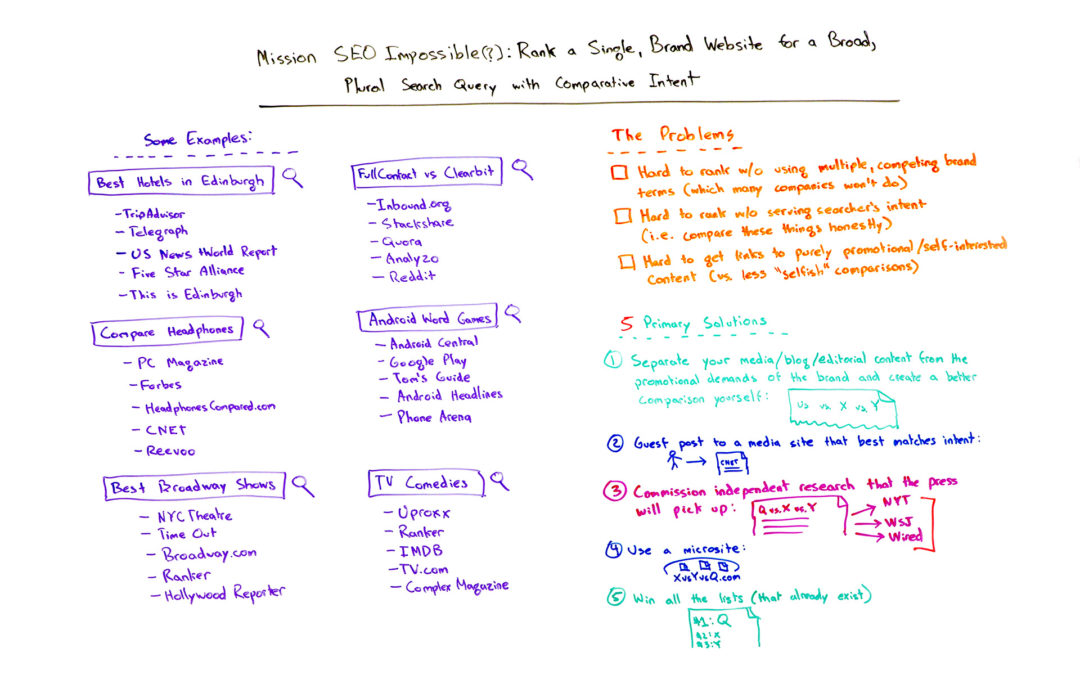 Mission SEO Impossible(?): Rank a Single, Brand Website for a Broad,
Plural Search Query with Comparative Intent
Some Examples:
Best Hotels in Edinburgh
- TripAdvisor
- Telegraph
- US News + World Report
- Five Star Alliance
- This is Edinburgh
Compare Headphones
- PC Magazine
- Forbes
- HeadphonesCompared.com
- CNET
- Reevoo
Best Broadway Shows
- NYC Theatre
- Time Out
- Broadway.com
- Ranker
- Hollywood Reporter
FullContact vs Clearbit
- Inbound.org
- Stackshare
- Quora
- Analyzo
- Reddit
Android Word Games
- Android Central
- Google Play
- Tom's Guide
- Android Headlines
- Phone Arena
TV Comedies
- Uproxx
- Ranker
- IMDB
- TV.com
- Complex Magazine
The Problems
Hard to rank w/o using multiple, competing brand
terms (which many companies won't do)
Hard to rank w/o serving searcher's intent
(i.e. compare these things honestly)
Hard to get links to purely promotional/self-interested
content (vs. less "selfish" comparisons)
5 Primary Solutions
① Separate your media/blog/editorial content from the
promotional demands of the brand and create a better
comparison yourself:
Us vs. X vs. Y
② Guest post to a media site that best matches intent:
CNET
③ Commission independent research that the press
will pick up:
Q vs. X vs. Y
NYT
WSJ
Wired
④ Use a microsite:
XvsYvsQ.com
⑤ Win all the lists (that already exist)
#1: Q
#2: X
#3: Y